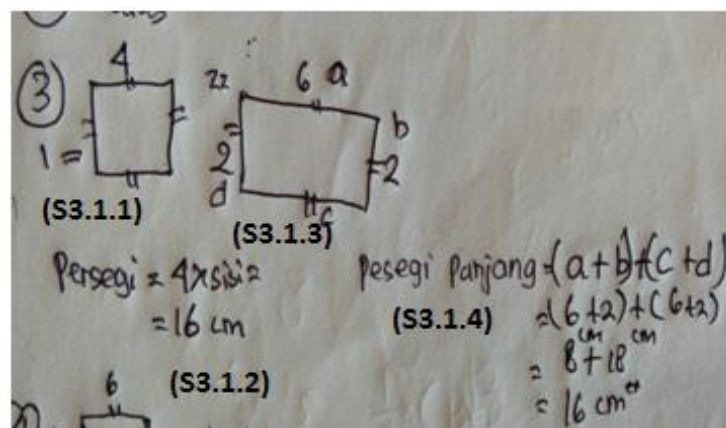 3
4
1 =
(S3.1.1)
6 a
b
2
2
d
c
(S3.1.3)
Persegi = 4 x sisi =
= 16 cm
(S3.1.2)
Pesegi Panjang = (a + b) + (c + d)
(S3.1.4)
= (6 + 2) + (6 + 2)
cm cm
= 8 + 18
= 16 cm
6